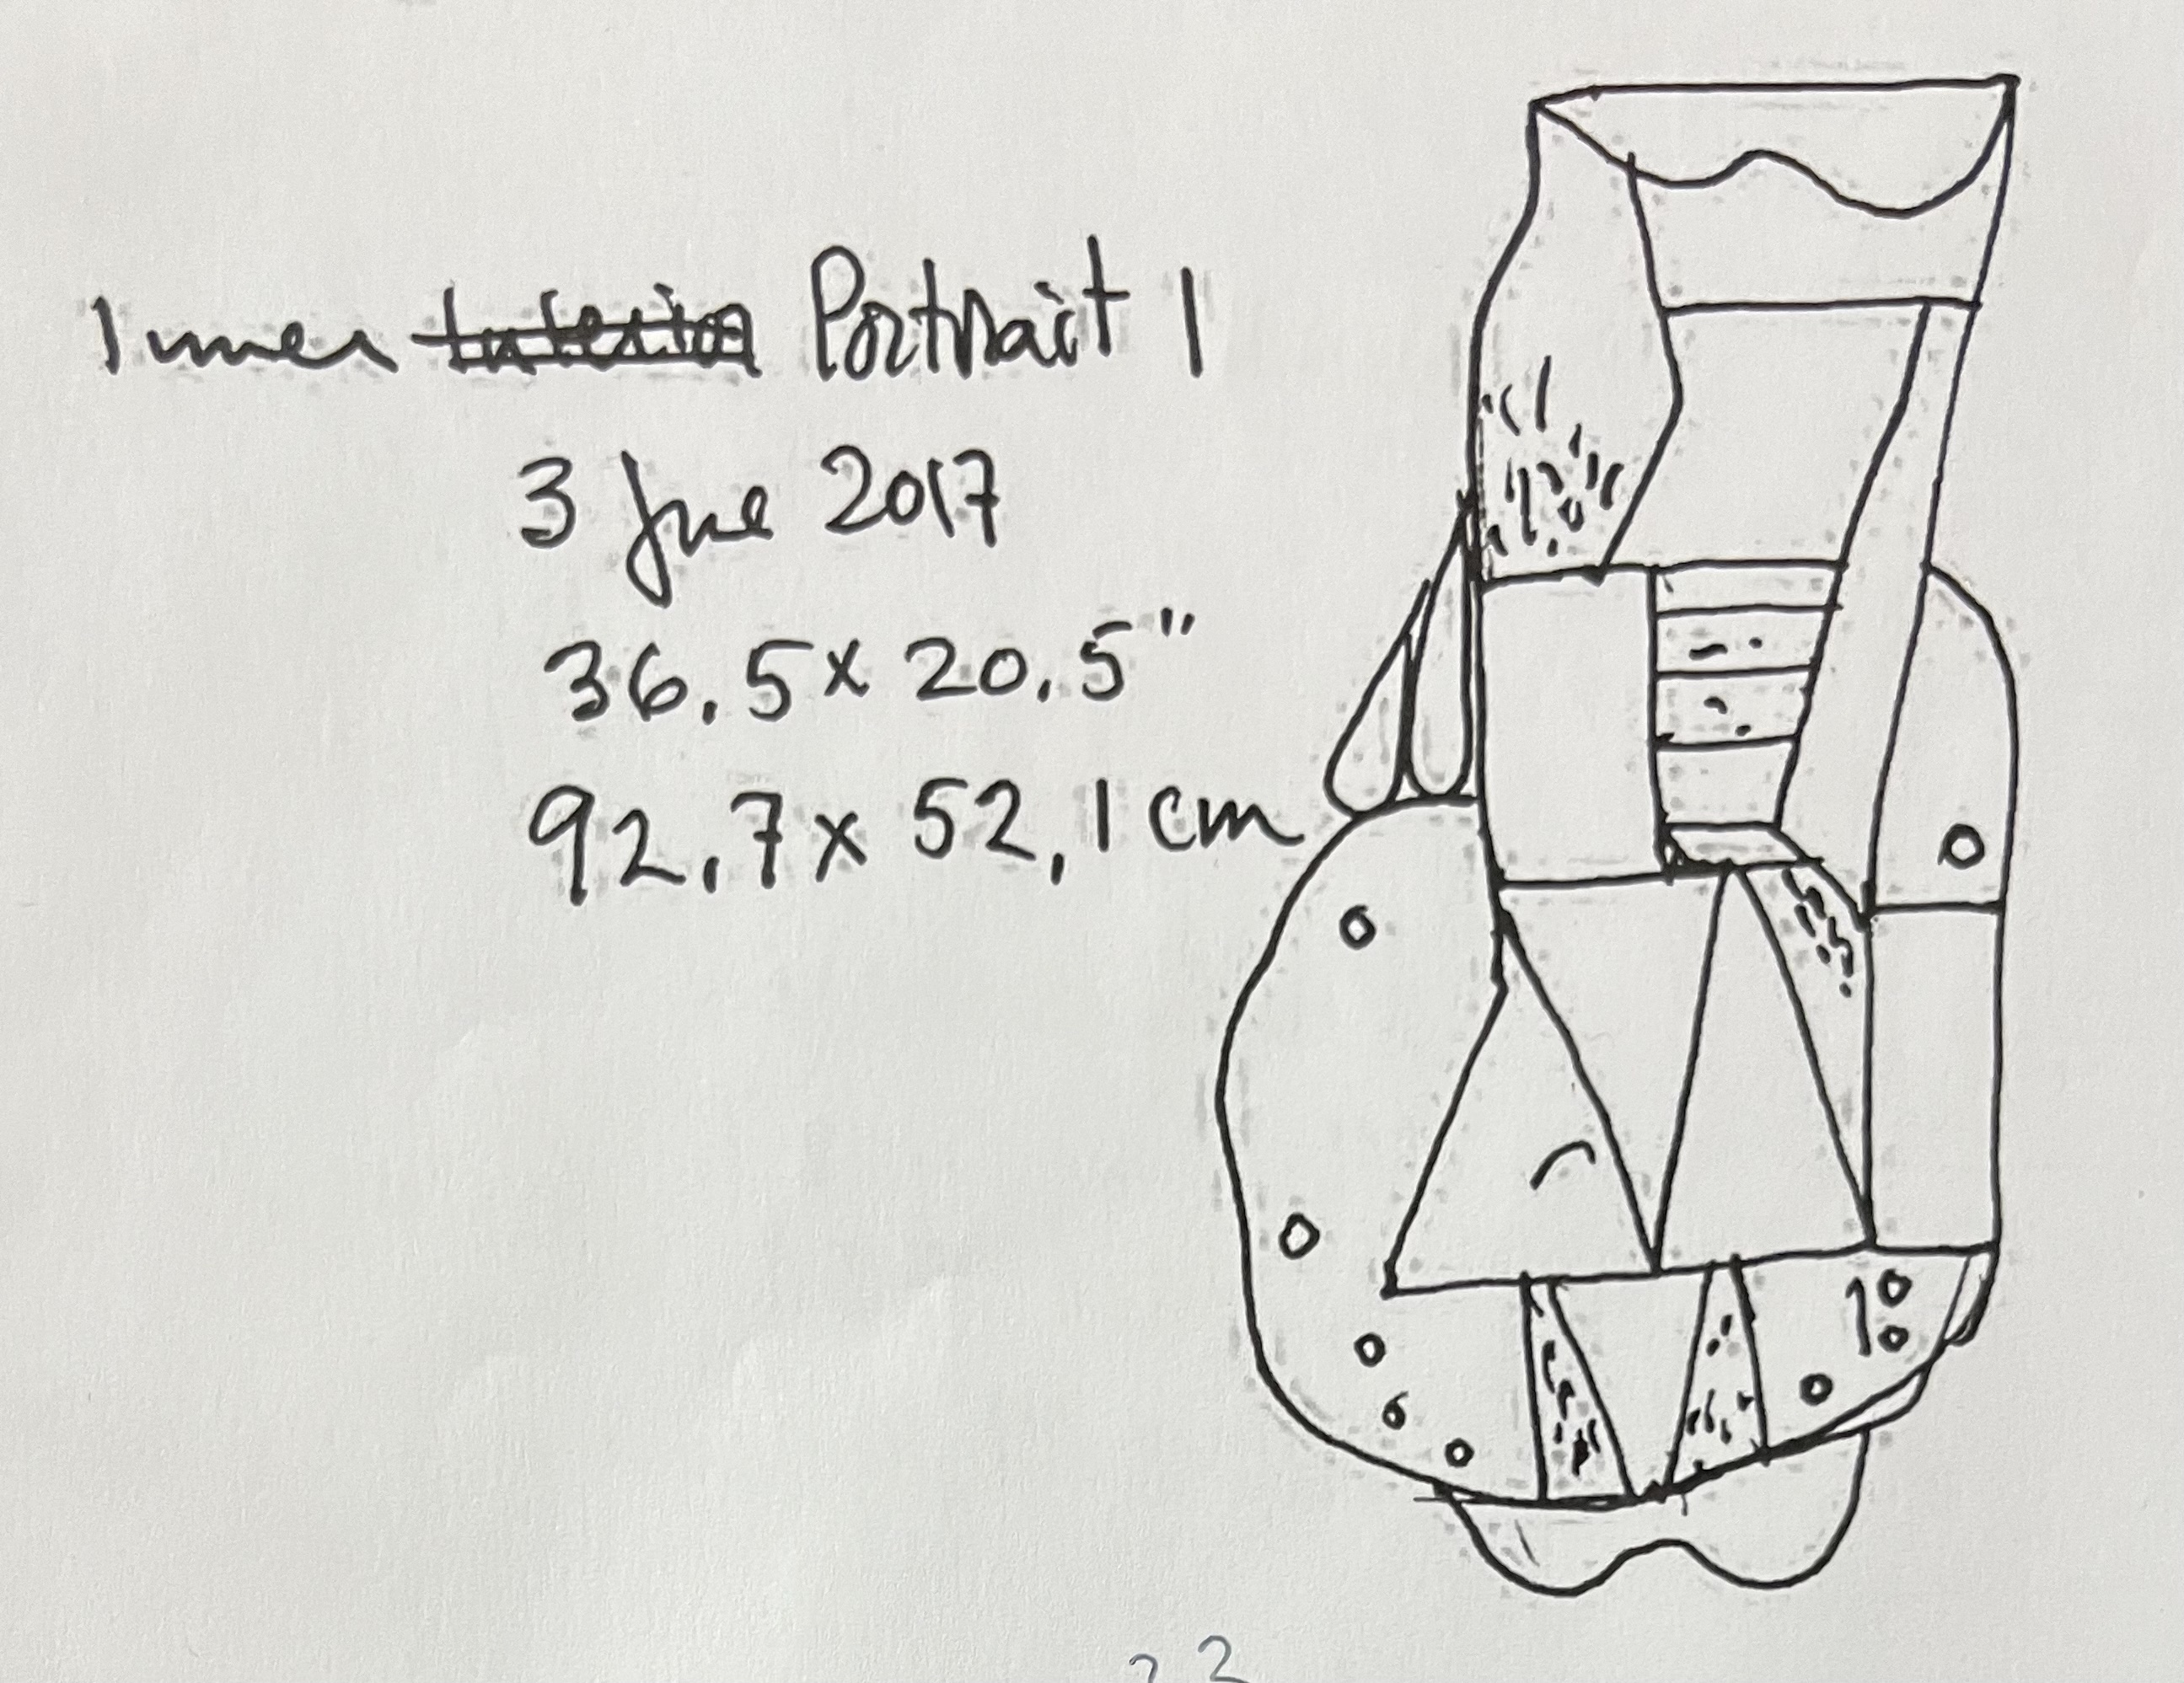 Inner Interior Portrait 1
3 June 2017
36.5 x 20.5"
92.7 x 52.1 cm